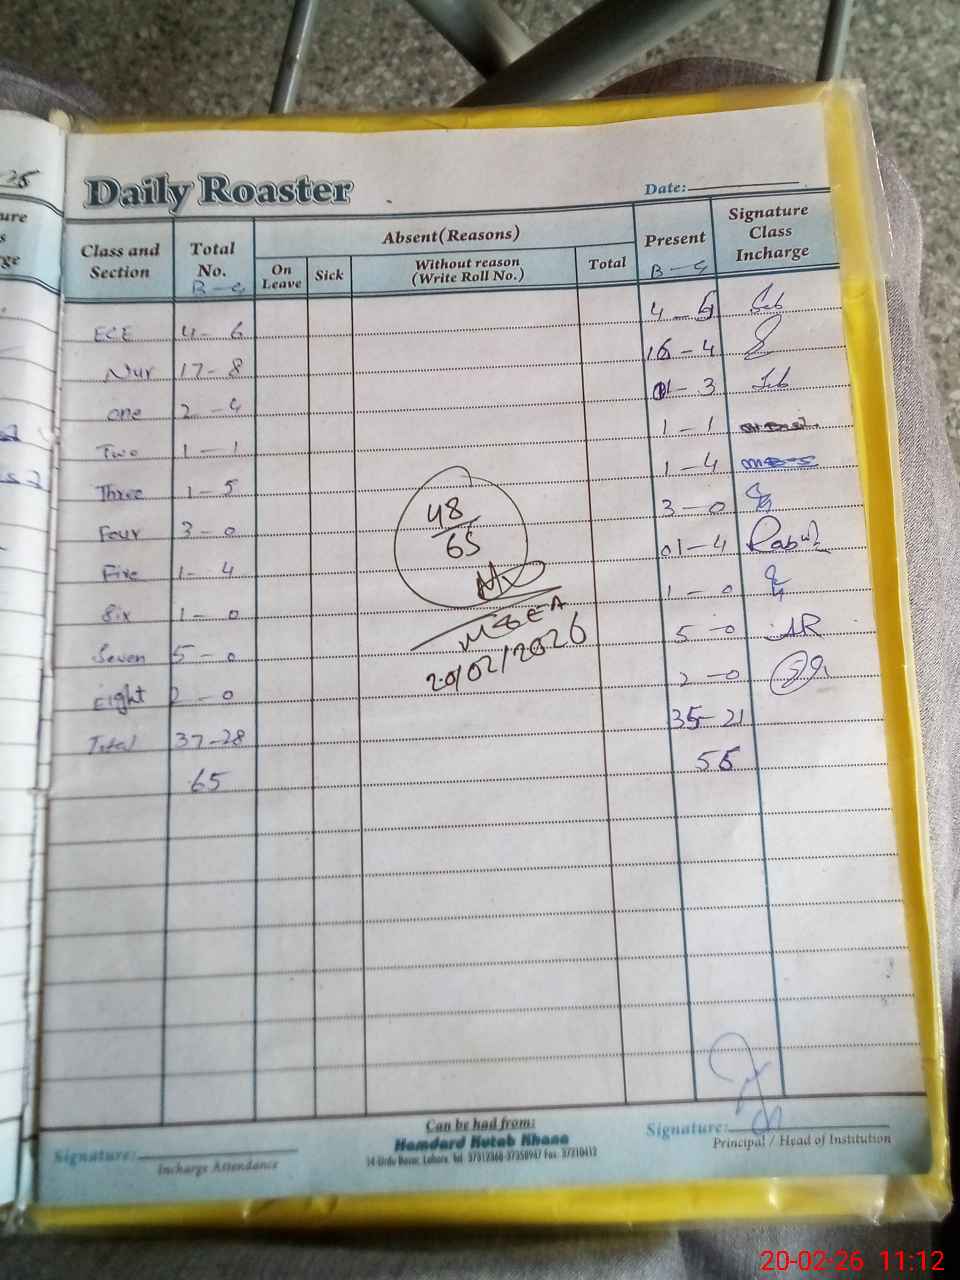 Daily Roaster
Date:
Class and Section
Total No.
B - G
Absent (Reasons)
On Leave
Sick
Without reason (Write Roll No.)
Total
Present
B - G
Signature Class Incharge
ECE 4 - 6 4 - 5
Nur 17 - 8 16 - 4
One 2 - 4 01 - 3
Two 1 - 1 1 - 1
Three 1 - 5 1 - 4
Four 3 - 0 3 - 0
Five 1 - 4 01 - 4
Six 1 - 0 1 - 0
Seven 5 - 0 5 - 0 AR
Eight 2 - 0 2 - 0
Total 37 - 28 35 - 21
65 56
48
65
MGEA
20/02/2026
Signature:
Incharge Attendance
Can be had from:
Hamdard Kutab Khana
14-Urdu Bazar, Lahore.
Signature:
Principal / Head of Institution
20-02-26 11:12